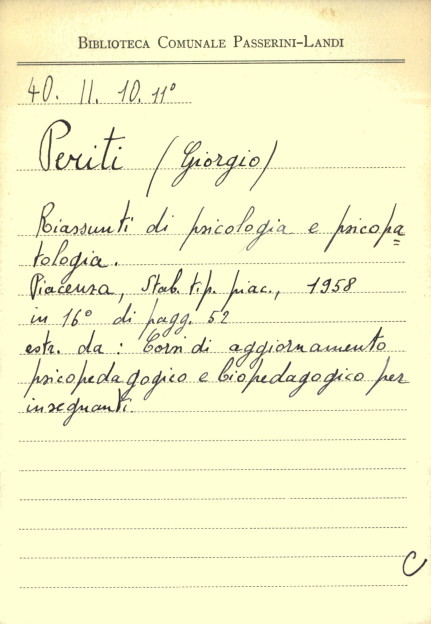 BIBLIOTECA COMUNALE PASSERINI-LANDI
40. II. 10. 11°
Periti (Giorgio)
Riassunti di psicologia e psicopa=
tologia.
Piacenza, Stab. tip. piac., 1958
in 16° di pagg. 52
estr. da: Corsi di aggiornamento
psicopedagogico e biopedagogico per
insegnanti.
C